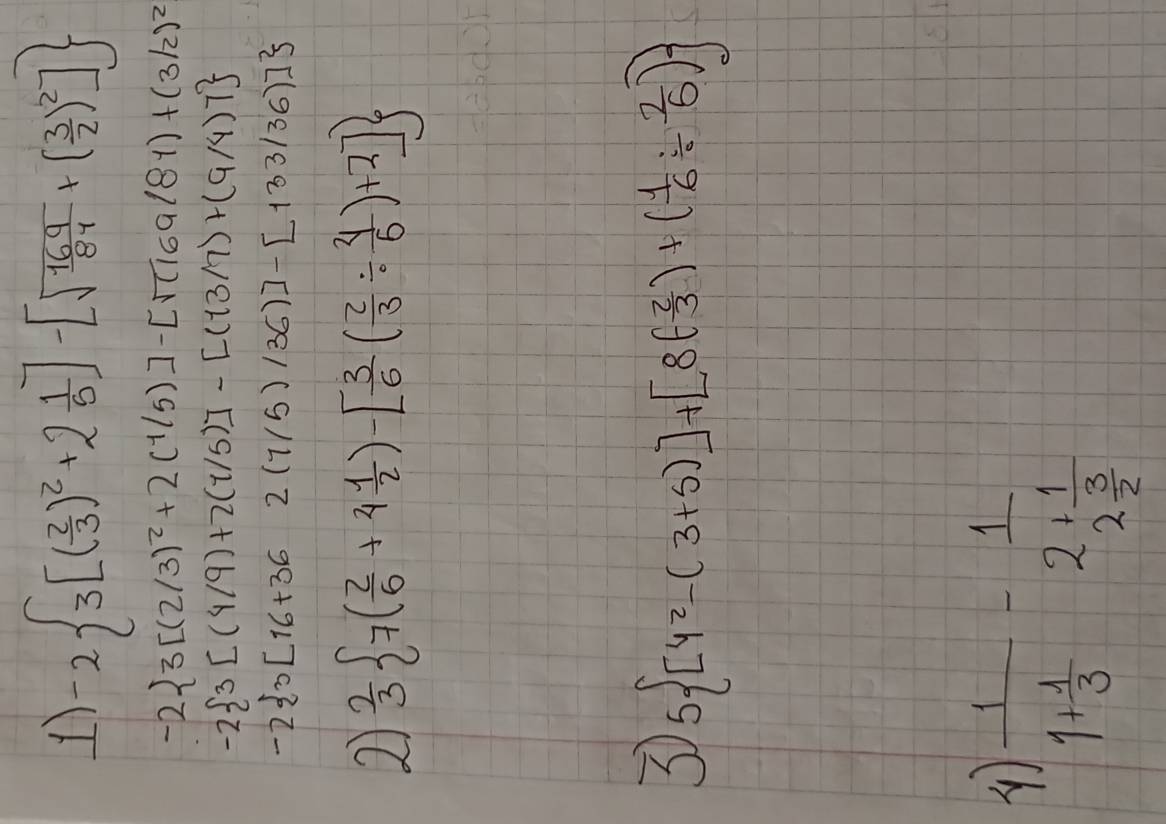 1) -2{3[(2/3)² + 2 1/5] - [√169/81 + (3/2)²]}
-2{3[(2/3)²+2(1/5)]-[√(169/81)+(3/2)²
-2{3[(4/9)+2(1/5)]-[(13/7)+(9/4)]}
-2{3[16+36 2(1/5)/36)]-[133/36)]}
2) 2/3{7(2/6 + 4 1/2)-[3/6(2/3 ÷ 4/6)+2]}
3) 5{[4²-(3+5)]+[8(2/3)+(1/6 ÷ 2/6)}
4) 1/(1+1/3) - 1/(2+1/(2 3/2))